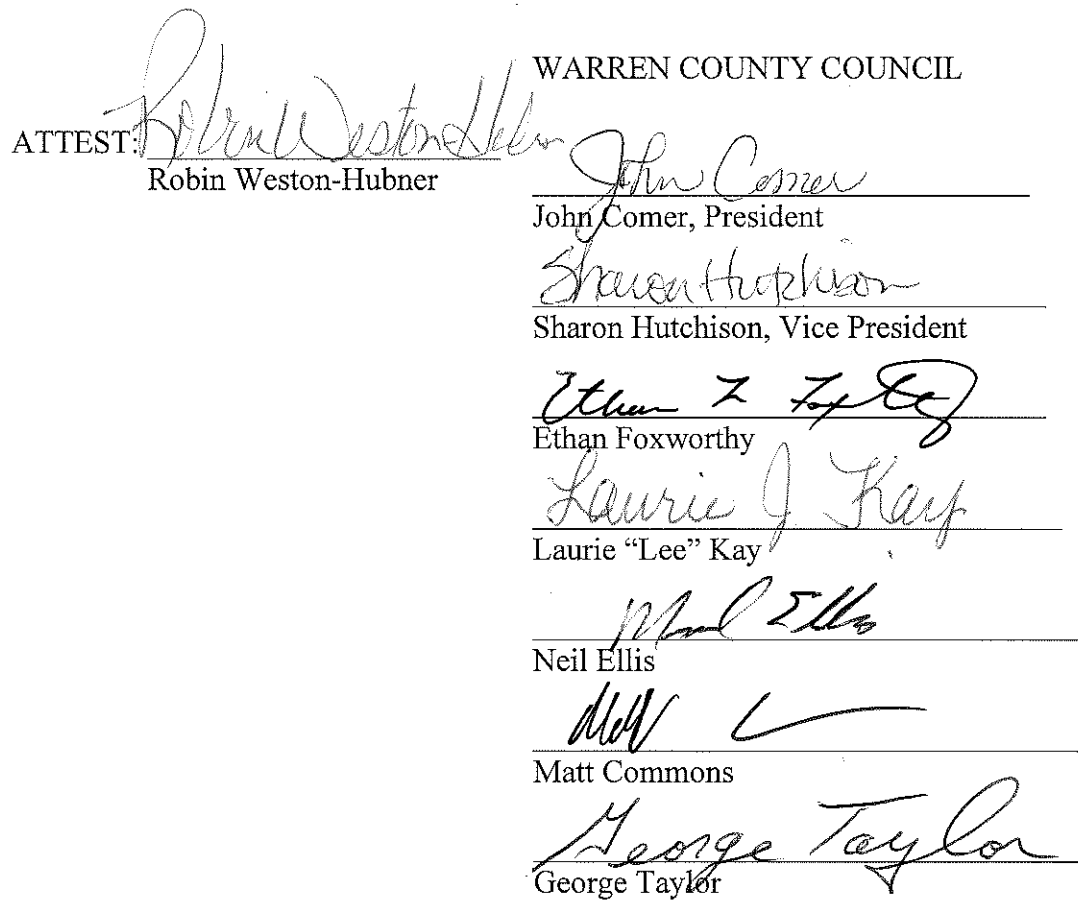 WARREN COUNTY COUNCIL
ATTEST: Robin Weston-Hubner
Robin Weston-Hubner
John Comer
John Comer, President
Sharon Hutchison
Sharon Hutchison, Vice President
Ethan Foxworthy
Laurie J Kay
Laurie “Lee” Kay
Ellis
Neil Ellis
Matt
Matt Commons
George Taylor
George Taylor